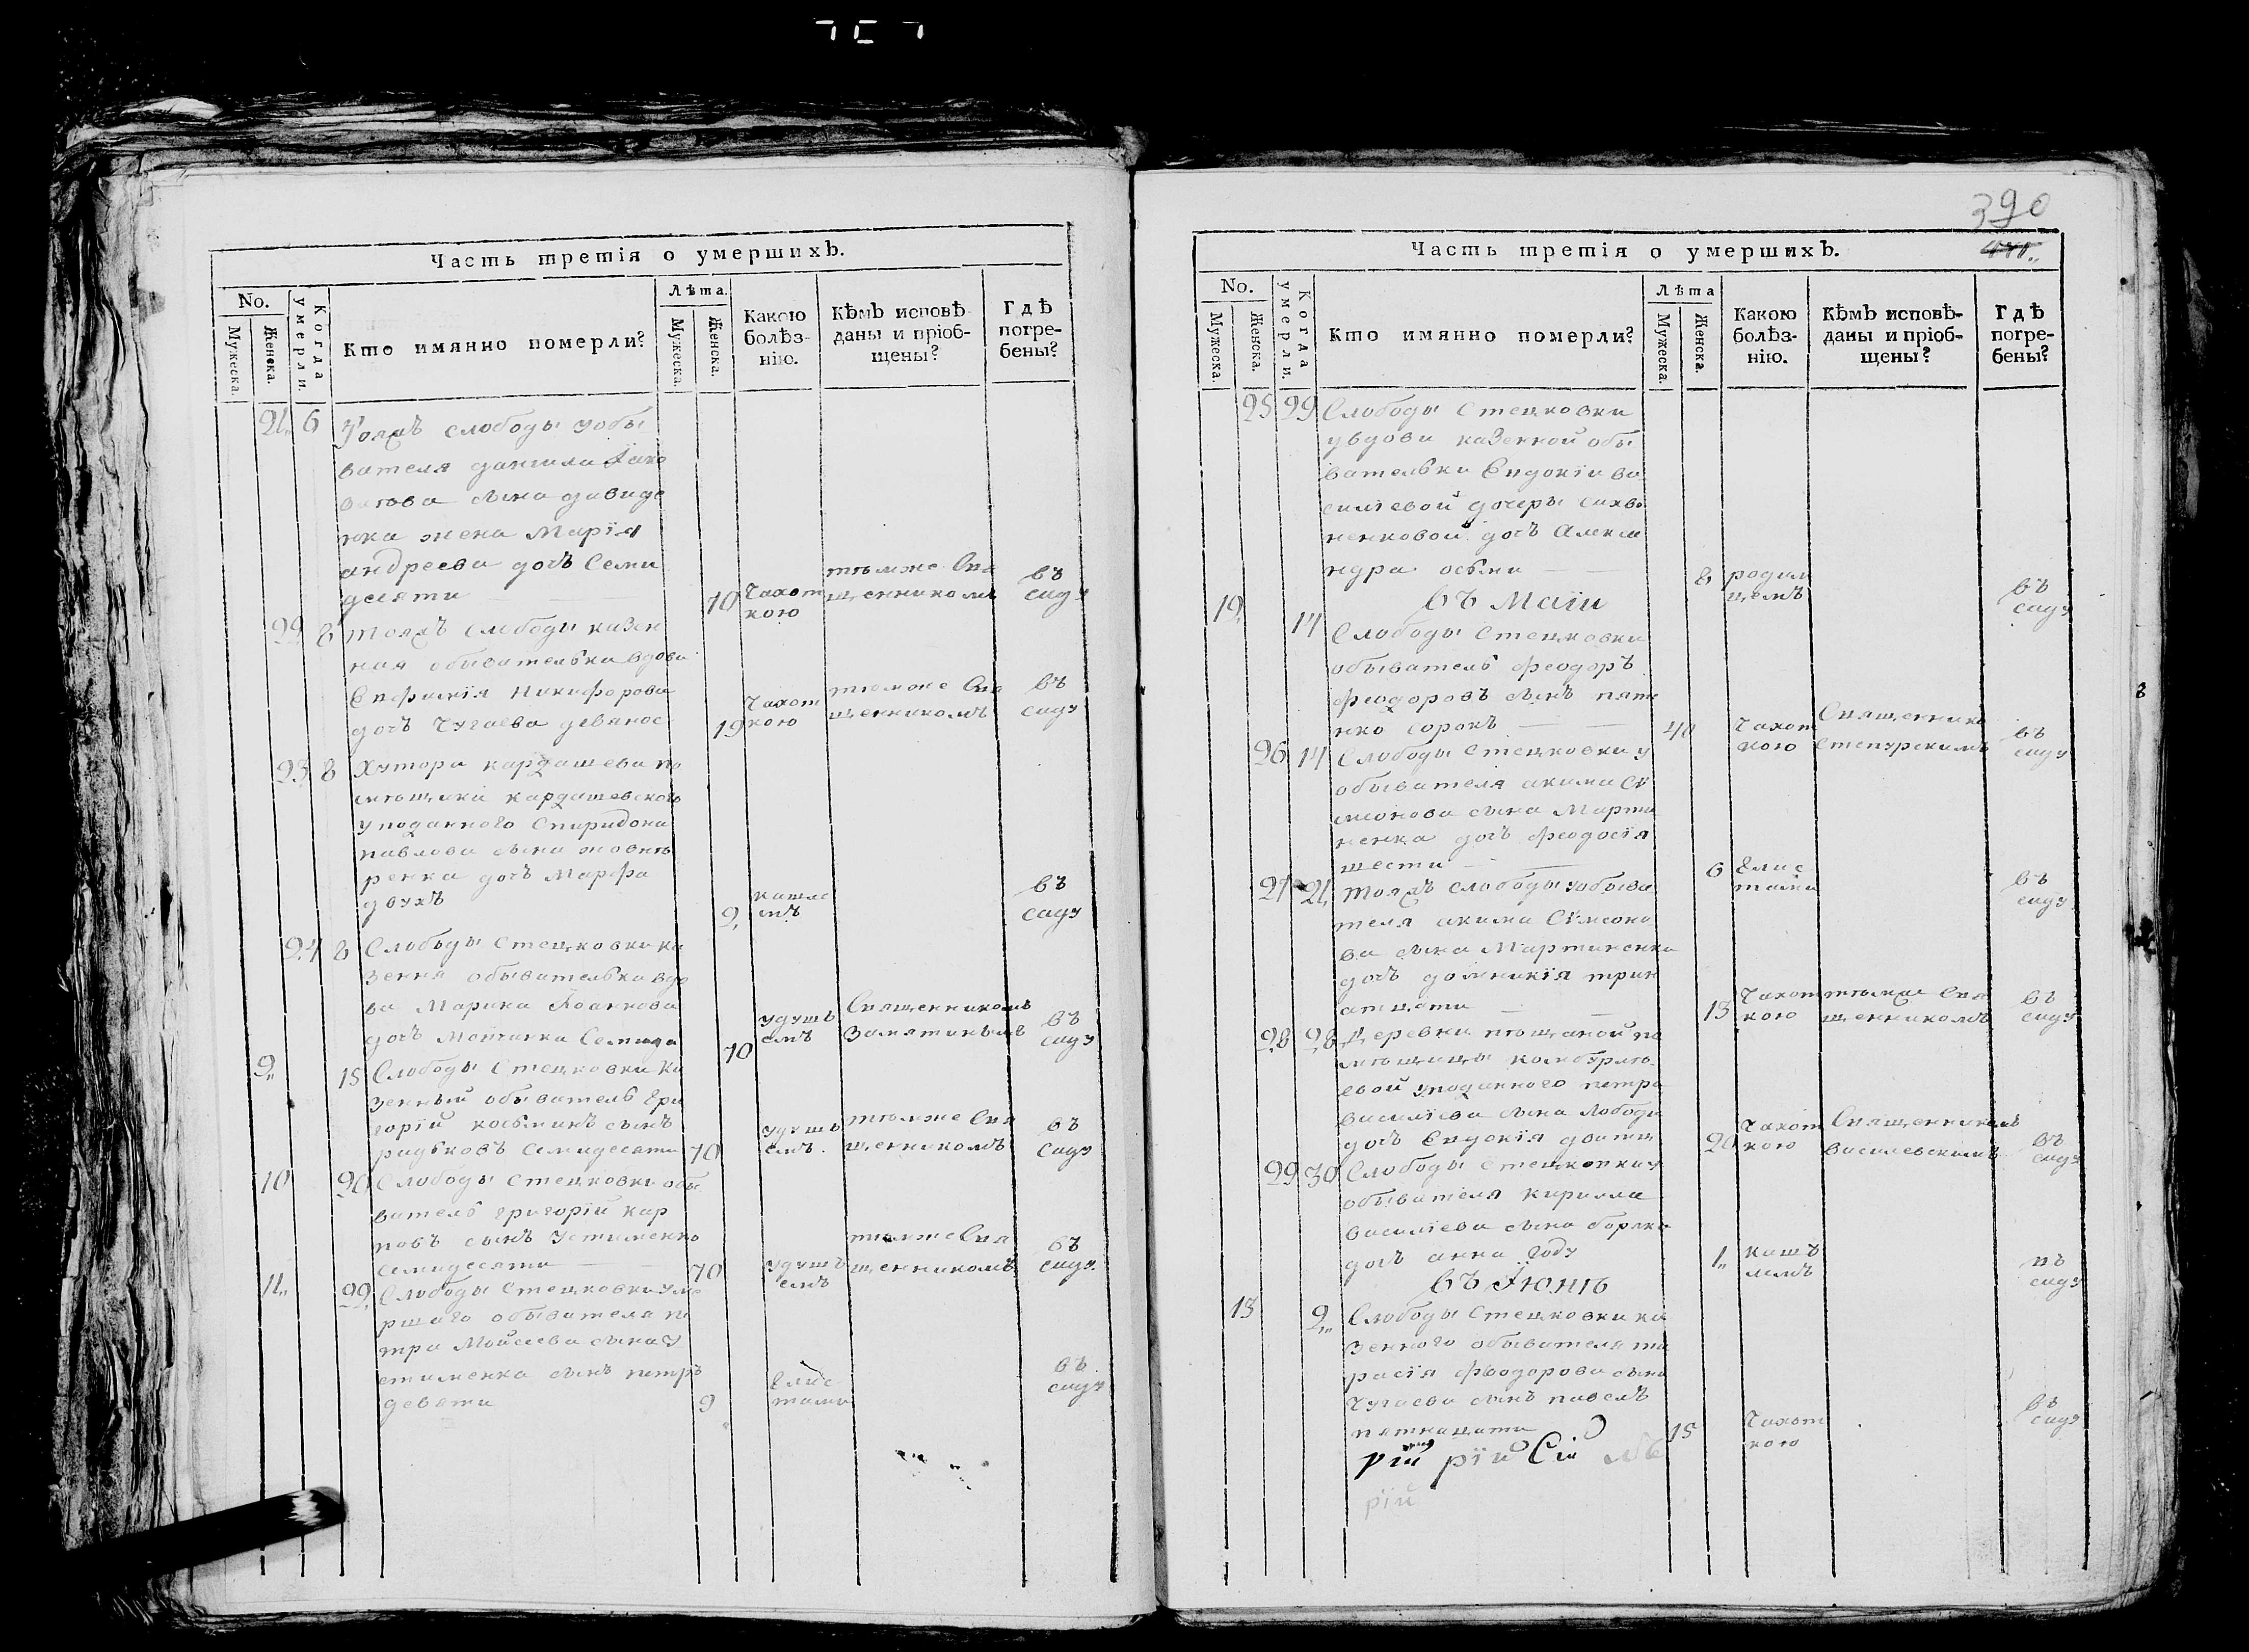 Часть третія о умершихъ.
No. Когда умерли. Кто имянно померли? Лѣта. Какою болѣз-нію. Кѣмъ исповѣ-даны и пріоб-щены? Гдѣ погре-бены?
Мужеска. Женска. Мужеска. Женска.
21. 6 Тояжъ слободы уобы
вателя данила Іако
влева сына давиде
нка жена Марія
андреева дочъ Семи
десяти 70 Чахот кою тѣмже Свя щенникомъ въ саду
22 8 тояжъ слободы казен
ная обывателька вдова
Евфимія Никифорова
дочъ Чугаева девянос
19 Чахот кою тѣмже Свя щенникомъ въ саду
23 8 Хутора кардашева по
мѣщика кардашевского
уподанного Спиридона
павлова сына жовни
ренка дочъ Марфа
двухъ 2, кашле мъ въ саду
24 8 Слободы Стецковки ка
зенна обывателька вдо
ва Марина Іоаннова
дочъ Семида 70 удушь емъ Священникомъ въ саду
9,, 15 Слободы Стецковки ка
зенный обыватель Гри
горій козьминъ сынъ
радьковъ Семидесяти 70 удушь емъ. тѣмже Свя щенникомъ въ саду
10 20 Слободы Стецковки обы
ватель григорій кар
повъ сынъ Устименко
семидесяти 70 удушь емъ тѣмже Свя щенникомъ въ саду
11,, 22, Слободы Стецковки уме
ршаго обывателя пе
тра Мойсеева сына У
стименка сынъ петръ
девяти 9 Глис тами въ саду
390
Часть третія о умершихъ.
No. Когда умерли. Кто имянно померли? Лѣта Какою болѣз-нію. Кѣмъ исповѣ-даны и пріоб-щены? Гдѣ погре-бены?
Мужеска. Женска. Мужеска. Женска.
25 29 Слободы Стецковки
увдови казенной обы
вательки Евдокіи ва
силіевой дочеры
дочъ Алекса
ндра осьми 8 родим цемъ въ саду
въ Маіи
12, 14 Слободы Стецковки
обыватель феодоръ
феодоровъ сынъ пяте
нко сорокъ 40 Чахот кою Священнико въ саду
26 14 Слободы Стецковки у
обывателя акима Си
меонова сына Марти
ненка дочъ феодосія
шести 6 Глис тами въ саду
27 21, тояжъ слободы уобыва
теля акима Симеоно
ва сына Мартиненка
дочъ домникія трин
атцати 13 Чахот кою тѣмже Свя щенникомъ въ саду
28 28 Деревни пещаной по
мѣщицы
евой уподанного петра
василіева сына Лободи
дочъ Евдокія дватц
20 Чахот кою Священникомъ василевскимъ въ саду
29 30 Слободы Стецковки у
обывателя кирилла
василіева сына
дочъ анна году 1,, кашъ лемъ въ саду
въ Іюнѣ
13 2,, Слободы Стецковки ка
зенного обывателя та
расія феодорова сына
Чугаева сынъ павелъ
пятнацати 15 Чахот кою въ саду
рій рій Сій
рій